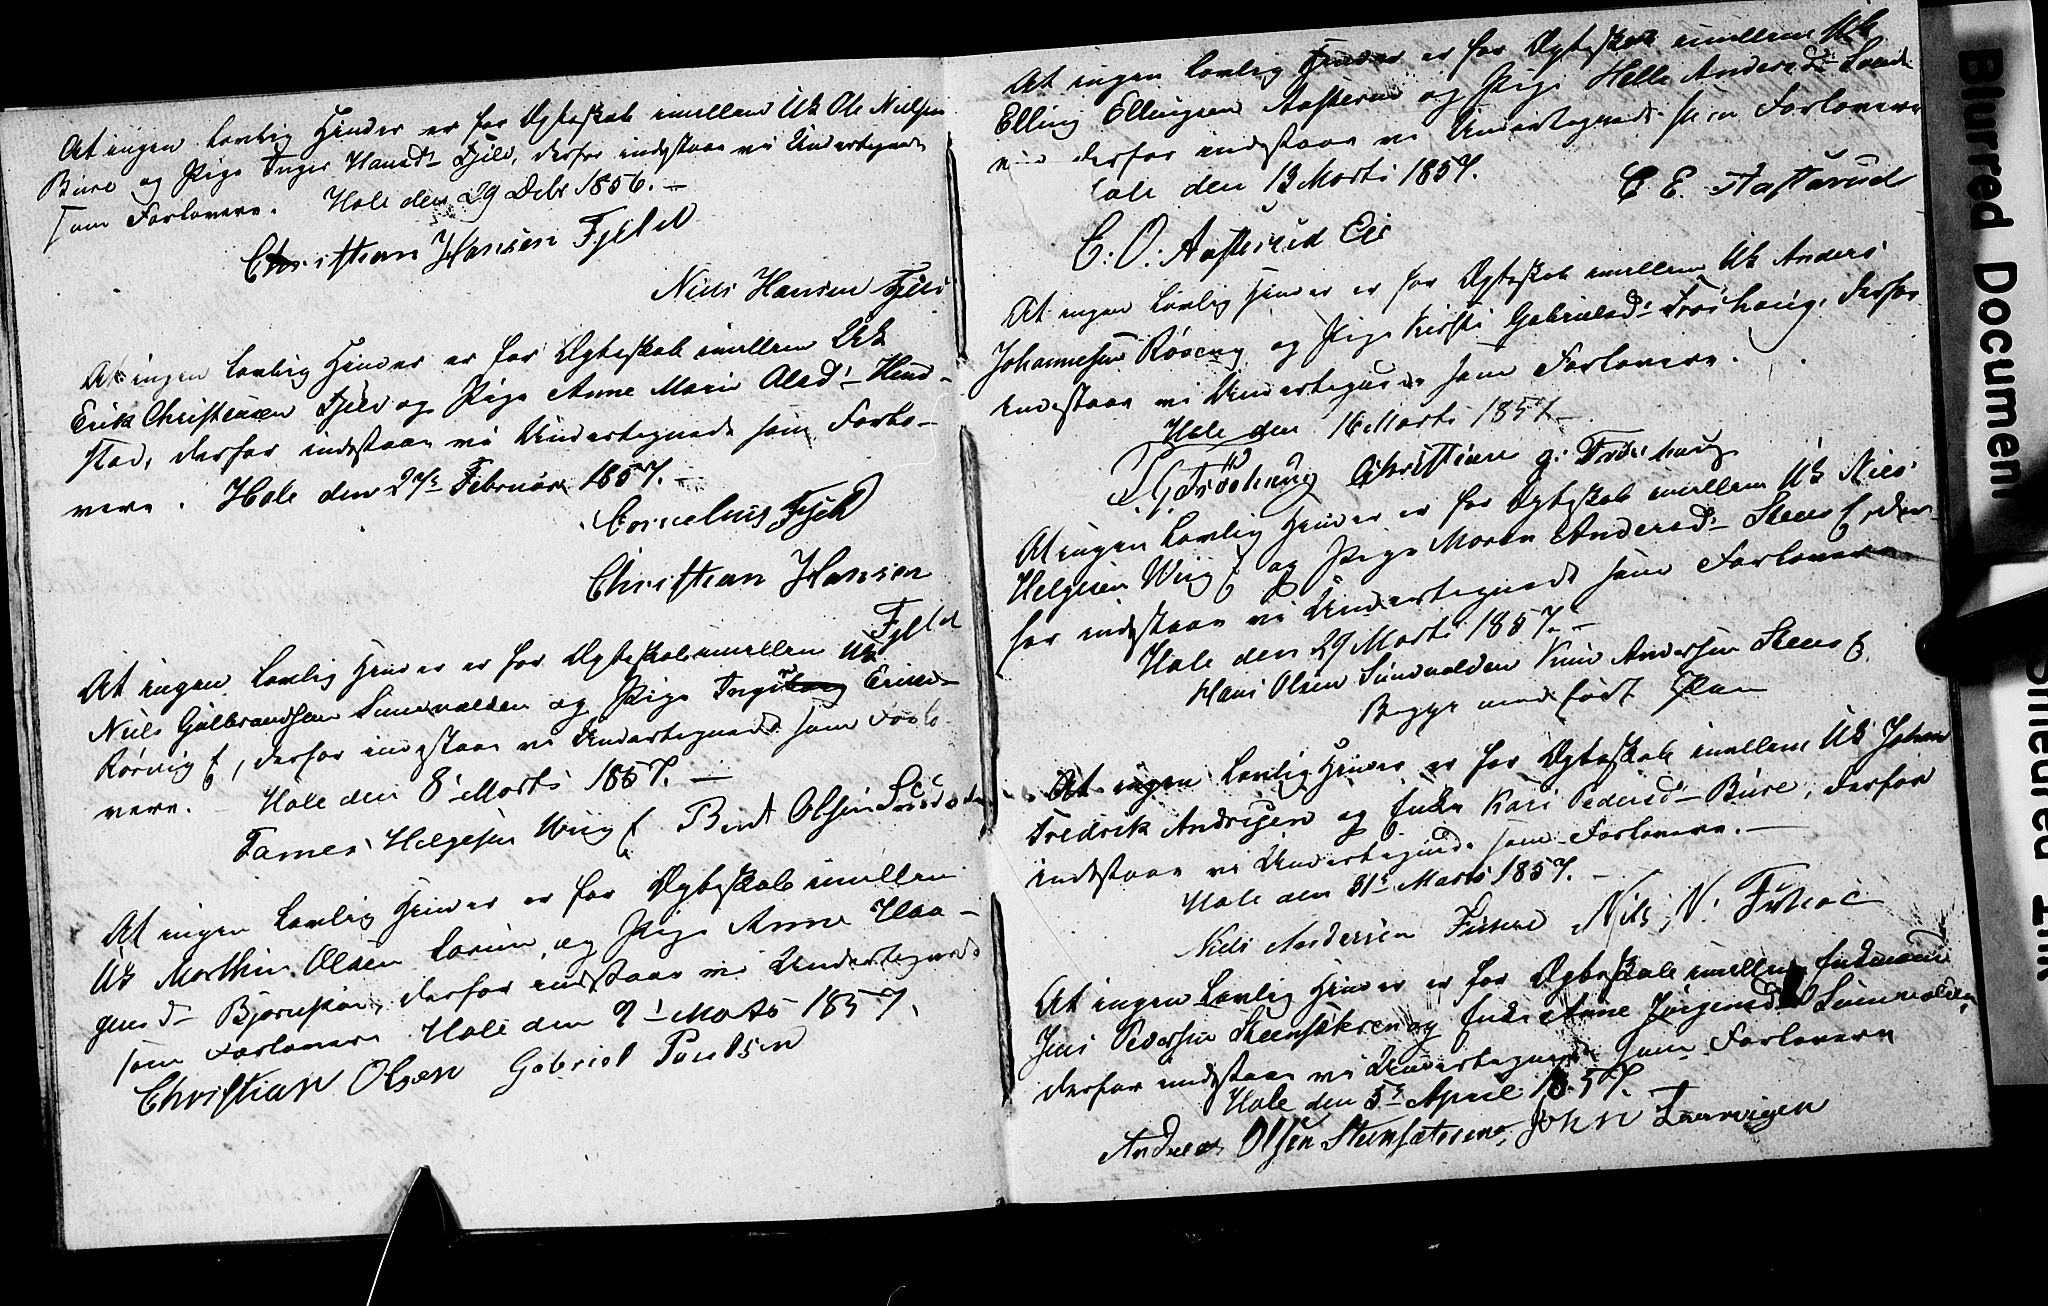 At ingen Lovlig Hinder er for Ægteskab imellem Uk Ole Nielsen
Bure og Pige Inger Hansd- Fjeld, derfor indestaar vi Undertegnede
som Forlovere. Hole den 29 Debr 1856.-
Christian Hansen Fjeld
Niels Hansen Fjeld
At ingen Lovlig Hinder er for Ægteskab imellem Uk
Erik Christensen Fjeld og Pige Anne Marie Olsd-
stad, derfor indestaar vi Undertegnede som Forlo-
vere. Hole den 27de Februar 1857.-
Cornelius Fjeld
Christian Hansen
Fjeld
At ingen Lovlig Hinder er for Ægteskab imellem Uk
Niels Gulbrandsen Sundvolden og Pige
Rørvig E, derfor indestaar vi Undertegnede som Forlo-
vere. Hole den 8 Marts 1857.-
Helgesen Wiig E Bent Olsen
At ingen Lovlig Hinder er for Ægteskab imellem
Uk Morthin Olsen og Pige Anne Haa-
gensd- derfor indestaar vi Undertegnede
som Forlovere Hole den 9 Marts 1857.
Christian Olsen Gabriel Poulsen
At ingen Lovlig Hinder er for Ægteskab imellem Uk
Elling Ellingsen og Pige Helle Andersd-
derfor indestaar vi Undertegnede som Forlovere
Hole den 13 Marts 1857.
C E Aasterud
C. O. Aasterud Eie
At ingen Lovlig Hinder er for Ægteskab imellem Uk Anders
Johannesen Røseng og Pige Kirsti Gabrielsd- Frøshaug, derfor
indestaar vi Undertegnede som Forlovere.
Hole den 16 Marts 1857-
Frøshaug Christian G. Frøshaug
At ingen Lovlig Hinder er for Ægteskab imellem Uk Niels
Helgesen Wiig E og Pige Maren Andersd- Steens E, der-
for indestaar vi Undertegnede som Forlovere
Hole den 29 Marts 1857.-
Hans Olsen Sundvolden Knud Andersen Steens E.
Begge med ført Pen
At ingen Lovlig Hinder er for Ægteskab imellem Uk Johan
Fredrik Andersen og Enke Kari Pedersd- Bure, derfor
indestaar vi Undertegnede som Forlovere.-
Hole den 31te Marts 1857.-
Niels Andersen Nils N.
At ingen Lovlig Hinder er for Ægteskab imellem Enkemand
Jens Pedersen og Enke Anne Jørgensd Sundvolden,
derfor indestaar vi Undertegnede som Forlovere
Hole den 5te April 1857.
Andreas Olsen John
Blurred Document
Smeared Ink